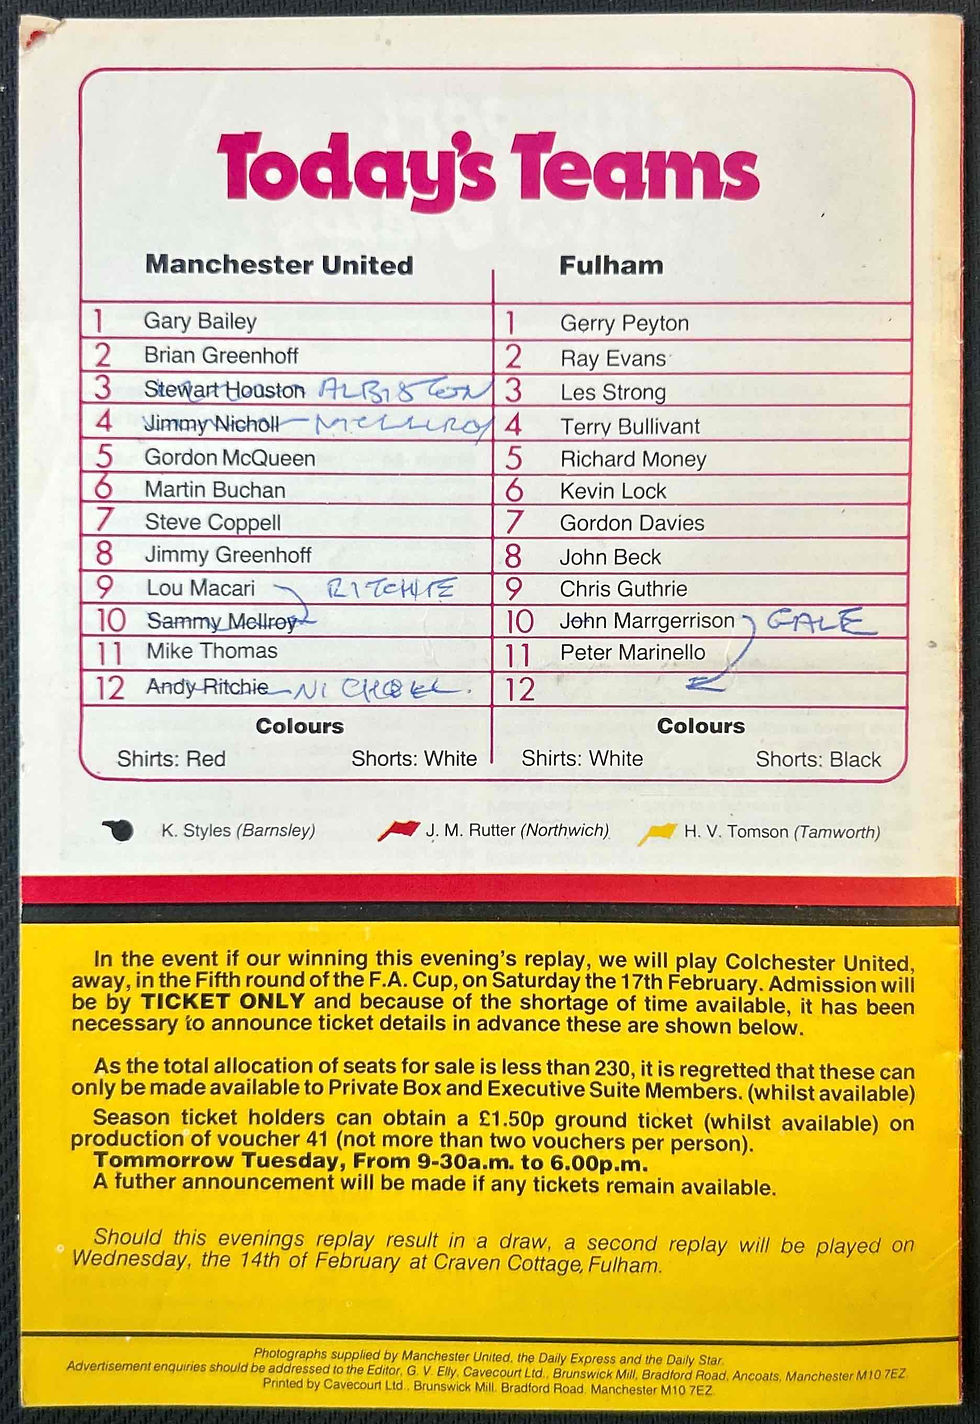 Today's Teams
Manchester United Fulham
1 Gary Bailey 1 Gerry Peyton
2 Brian Greenhoff 2 Ray Evans
3 Stewart Houston ALBISTON 3 Les Strong
4 Jimmy Nicholl MCILLROY 4 Terry Bullivant
5 Gordon McQueen 5 Richard Money
6 Martin Buchan 6 Kevin Lock
7 Steve Coppell 7 Gordon Davies
8 Jimmy Greenhoff 8 John Beck
9 Lou Macari RITCHIE 9 Chris Guthrie
10 Sammy McIlroy 10 John Marrgerrison GALE
11 Mike Thomas 11 Peter Marinello
12 Andy Ritchie 12
Colours Colours
Shirts: Red Shorts: White Shirts: White Shorts: Black
K. Styles (Barnsley) J. M. Rutter (Northwich) H. V. Tomson (Tamworth)
In the event if our winning this evening's replay, we will play Colchester United,
away, in the Fifth round of the F.A. Cup, on Saturday the 17th February. Admission will
be by TICKET ONLY and because of the shortage of time available, it has been
necessary to announce ticket details in advance these are shown below.
As the total allocation of seats for sale is less than 230, it is regretted that these can
only be made available to Private Box and Executive Suite Members. (whilst available)
Season ticket holders can obtain a £1.50p ground ticket (whilst available) on
production of voucher 41 (not more than two vouchers per person).
Tommorrow Tuesday, From 9-30a.m. to 6.00p.m.
A futher announcement will be made if any tickets remain available.
Should this evenings replay result in a draw, a second replay will be played on
Wednesday, the 14th of February at Craven Cottage, Fulham.
Photographs supplied by Manchester United, the Daily Express and the Daily Star.
Advertisement enquiries should be addressed to the Editor, G. V. Elly, Cavecourt Ltd., Brunswick Mill, Bradford Road, Ancoats, Manchester M10 7EZ.
Printed by Cavecourt Ltd., Brunswick Mill, Bradford Road, Manchester M10 7EZ.